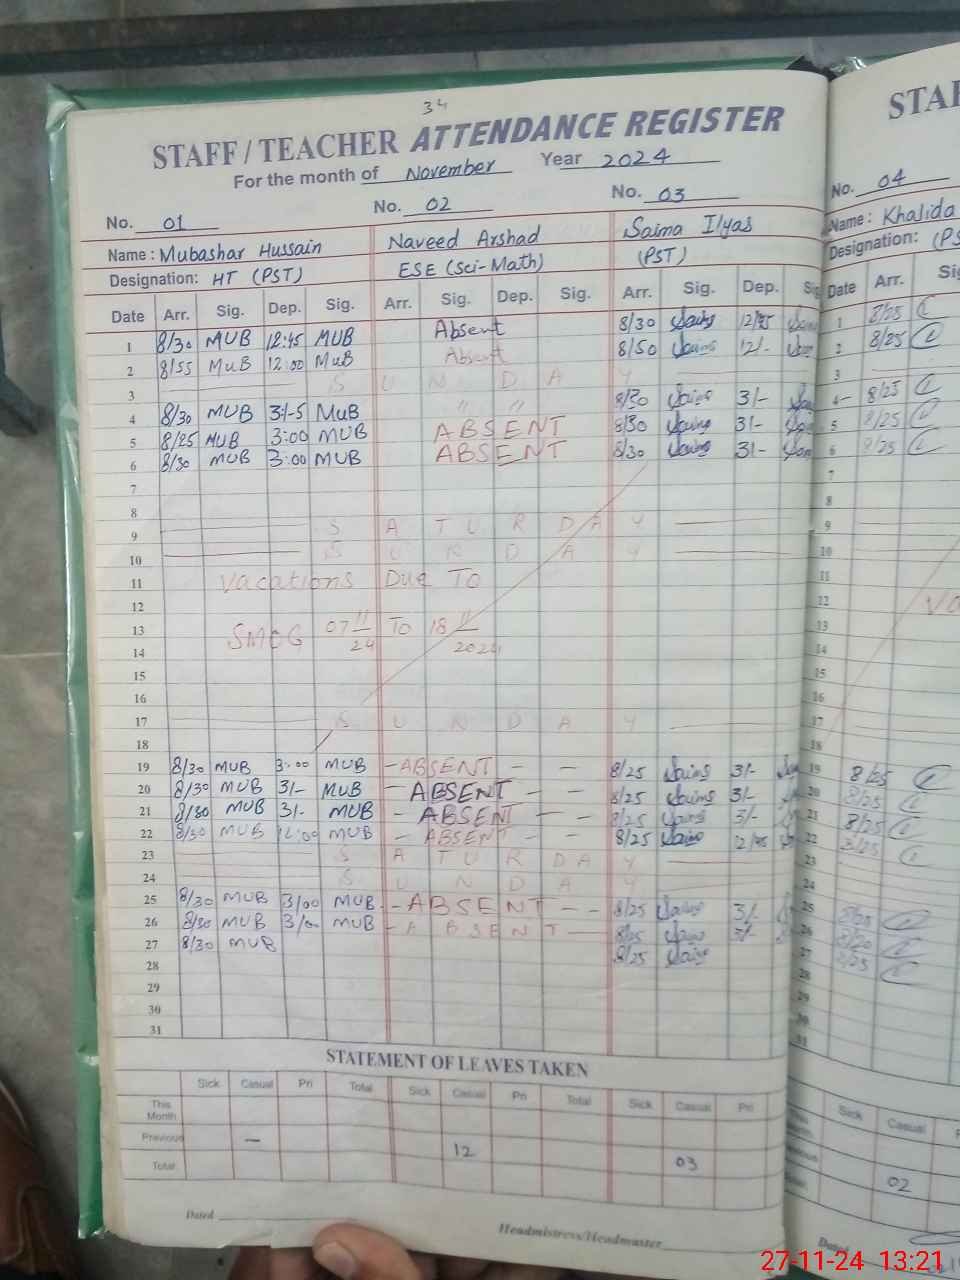 34
STAFF / TEACHER ATTENDANCE REGISTER
For the month of November Year 2024
No. 01 No. 02 No. 03
Name : Mubashar Hussain Naveed Arshad Saima Ilyas
Designation: HT (PST) ESE (Sci-Math) (PST)
Date Arr. Sig. Dep. Sig. Arr. Sig. Dep. Sig. Arr. Sig. Dep. Sig
1 8/30 MUB 12:45 MUB Absent 8/30 12/45
2 8/55 MUB 12:00 MUB Absent 8/50 12/-
3 S U N D A Y
4 8/30 MUB 3/-5 MUB " " 8/30 3/-
5 8/25 MUB 3:00 MUB ABSENT 8/30 3/-
6 8/30 MUB 3:00 MUB ABSENT 8/30 3/-
7
8
9 S A T U R D A Y
10 S U N D A Y
11 Vacations Due To
12
13 SMOG 07 11/24 To 18 11/2024
14
15
16
17 S U N D A Y
18
19 8/30 MUB 3:00 MUB - ABSENT - - 8/25 3/-
20 8/30 MUB 3/- MUB - ABSENT - - 8/25 3/-
21 8/30 MUB 3/- MUB - ABSENT - - 8/25 3/-
22 8/30 MUB 12:00 MUB - ABSENT - 8/25 12/45
23 S A T U R D A Y
24 S U N D A Y
25 8/30 MUB 3/00 MUB - ABSENT - - 8/25 3/-
26 8/30 MUB 3/00 MUB - ABSENT - 8/25 3/-
27 8/30 MUB 8/25
28
29
30
31
STATEMENT OF LEAVES TAKEN
Sick Casual Pri Total Sick Casual Pri Total Sick Casual Pri
This Month
Previous — 12
Total 03
Dated Headmistress/Headmaster
STAF
No. 04
Name : Khalida
Designation: (PS
Date Arr. Sig
1 8/25
2 8/25
3
4 8/25
5 8/25
6 8/25
7
8
9
10
11
12
13
14
15
16
17
18
19 8/25
20 8/25
21 8/25
22 8/25
23
24
25 8/25
26
27 8/25
28
29
30
31
Sick Casual
02
Dated
27-11-24 13:21